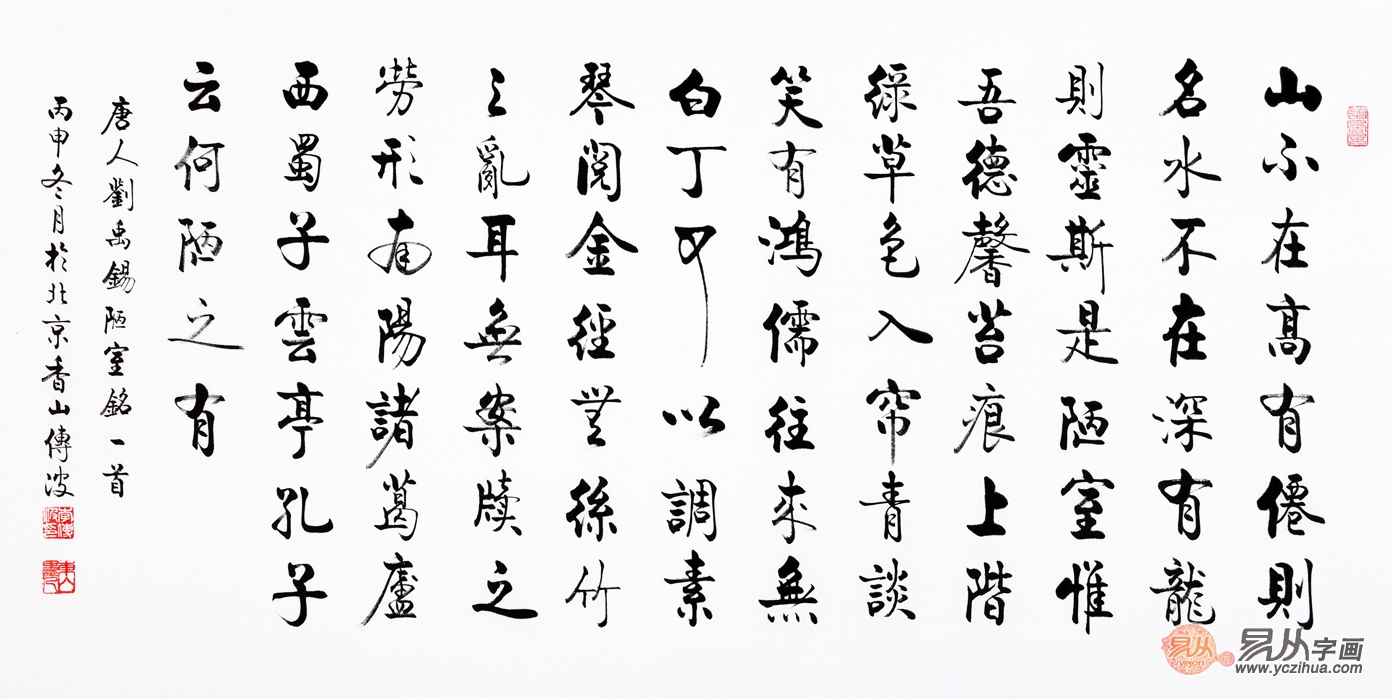 山不在高有僊則
名水不在深有龍
則靈斯是陋室惟
吾德馨苔痕上階
綠草色入帘青談
笑有鴻儒往來無
白丁可以調素
琴閱金經無絲竹
之亂耳無案牘之
勞形南陽諸葛廬
西蜀子雲亭孔子
云何陋之有
唐人劉禹錫陋室銘一首
丙申冬月於北京香山傳波
易从
易从字画
www.yczihua.com